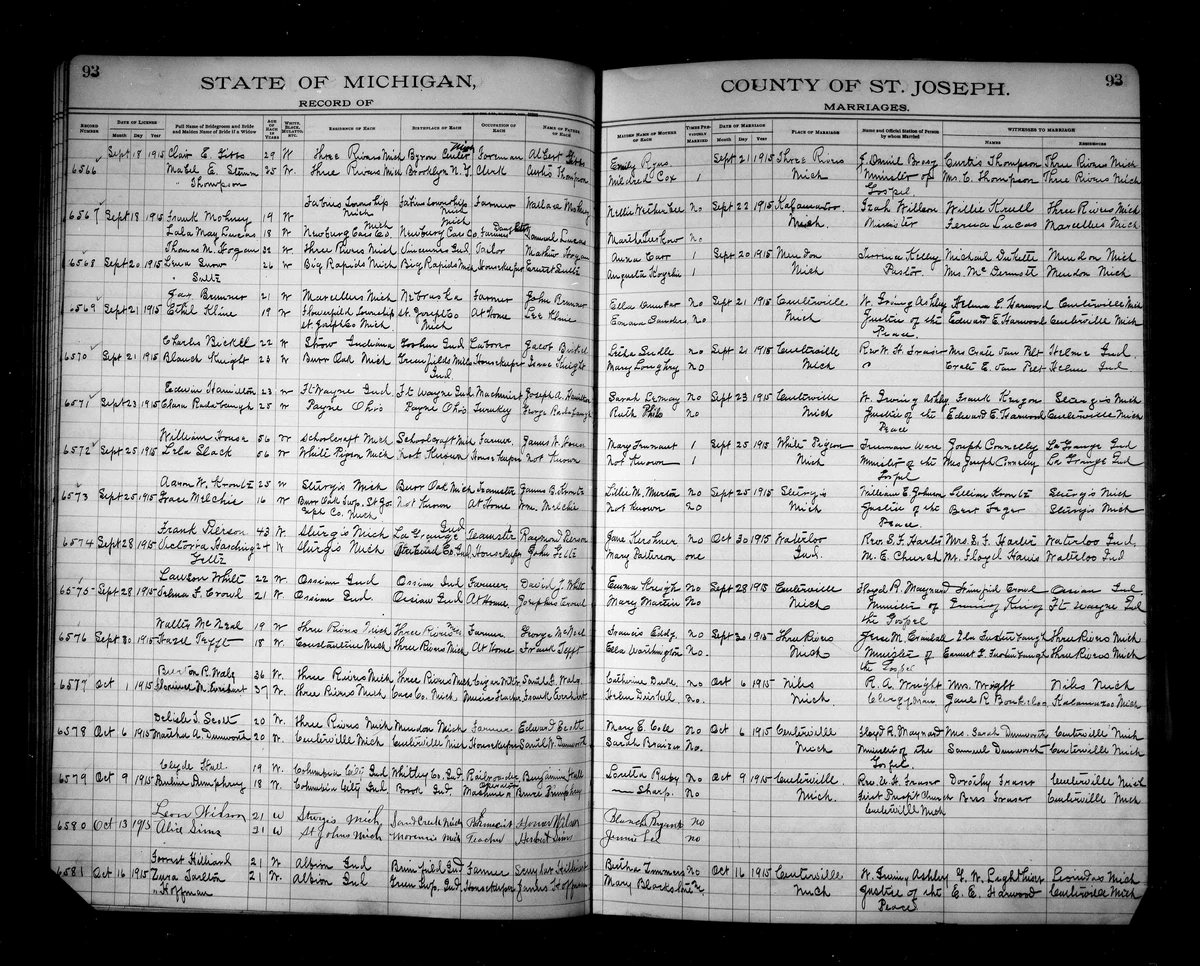 93
STATE OF MICHIGAN,
RECORD OF
RECORD NUMBER
DATE OF LICENSE
Month Day Year
Full Name of Bridegroom and Bride and Maiden Name of Bride if a Widow
AGE OF EACH IN YEARS
WHITE, BLACK, MULATTO, ETC.
RESIDENCE OF EACH
BIRTHPLACE OF EACH
OCCUPATION OF EACH
NAME OF FATHER OF EACH
Mich
Sept 18 1915 Clair E. 29 W Three Rivers Mich Byron Center Foreman Albert
6566 Mabel E. 25 W. Three Rivers Mich Brooklyn N.Y. Clerk Curtis Thompson
" Thompson
Fabius Township Fabius Township Farmer Wallace Mohney
Mich Mich
6567 Sept 18 1915 Frank Mohney 19 W
Lala May Lucas 18 W Newburg Cass Co. Mich Newburg Cass Co Mich Farmers Daughter Samuel Lucas
Thomas M. Hogan 32 W Three Rivers Mich Vincennes Ind Tailor Mathew Hogan
6568 Sept 20 1915 Lena 26 W Big Rapids Mich Big Rapids Mich Housekeeper Ernest
Jay Brunner 21 W Marcellus Mich Nebraska Farmer John Brunner
6569 Sept 21 1915 Ethel Kline 19 W Flowerfield Township St. Joseph Co At Home Lee Kline
St. Joseph Co Mich. Mich
Charles Bickel 22 W Indiana Goshen Ind Laborer Jacob Bickel
6570 Sept 21 1915 Blanch Knight 23 W Burr Oak Mich Greenfield Mills Housekeeper Isaac Knight
Ind
Edwin Hamilton 23 W Ft. Wayne Ind Ft Wayne Ind Machinist Joseph A. Hamilton
6571 Sept 23 1915 Clara Radabaugh 25 W Payne Ohio Payne Ohio Turnkey George Radabaugh
William House 56 W Schoolcraft Mich Schoolcraft Mich Farmer James W. House
6572 Sept 25 1915 Lela Slack 56 W White Pigeon Mich Not Known Housekeeper Not Known
Aaron W. Krontz 25 W Sturgis Mich Burr Oak Mich Teamster James B. Krontz
6573 Sept 25 1915 Grace Melchie 16 W Burr Oak Twp. St. Jo- Not Known At Home Wm. Melchie
seph Co. Mich
Frank Pierson 43 W. Sturgis Mich La Grange Ind Teamster Raymond Pierson
6574 Sept 28 1915 Victoria Harding 24 W Sturgis Mich Steuben Co Ind Housekeeper John
Lawson Whilt 22 W. Ossian Ind Ossian Ind Farmer David J. Whilt
6575 Sept 28 1915 Velma F. Crowl 21 W. Ossian Ind Ossian Ind At Home Josephus Crowl
Walter McNeal 19 W Three Rivers Mich Three Rivers Mich Farmer George McNeal
6576 Sept 30 1915 Hazel Tefft 18 W. Constantine Mich Three Rivers Mich At Home Frank Tefft
Burton R. Walz 36 W. Three Rivers Mich Three Rivers Mich Cigar Samuel G. Walz
6577 Oct 1 1915 Florence M. Everhart 37 W. Three Rivers Mich Cass Co. Mich Music Teacher Frank Everhart
Delisle J. Scott 20 W. Three Rivers Mich Mendon Mich Farmer Edward Scott
6578 Oct 6 1915 Martha A. Dumworth 20 W. Centerville Mich Centerville Mich Housekeeper Saml W. Dumworth
Clyde Hull 19 W. Columbia City Ind Whitley Co. Ind Railroader Benjamin Hull
6579 Oct 9 1915 Pauline Pumphrey 18 W. Columbia City Ind Brook Ind. Machine Operator Bruce Pumphrey
Leon Wilson 21 W Sturgis Mich Sand Creek Mich Pharmacist Homer Wilson
6580 Oct 13 1915 Alice Sims 31 W St Johns Mich Morenci Mich Teacher Herbert Sims
Forrest Hilliard 21 W Albion Ind Brimfield Ind Farmer Hilliard
6581 Oct 16 1915 Zura Tarlton 21 W. Albion Ind Green Twp. Ind Housekeeper James Hoffman
" Hoffman
93
COUNTY OF ST. JOSEPH.
MARRIAGES.
MAIDEN NAME OF MOTHER OF EACH
TIMES PREVIOUSLY MARRIED
DATE OF MARRIAGE
Month Day Year
PLACE OF MARRIAGE
Name and Official Station of Person by whom Married
WITNESSES TO MARRIAGE
NAMES
RESIDENCES
Emily Sept 21 1915 Three Rivers J. Daniel Curtis Thompson Three Rivers Mich
Mildred Cox 1 Mich Minister of Mrs. C. Thompson Three Rivers Mich
Gospel
Nellie Sept 22 1915 Kalamazoo Willson Willie Krull Three Rivers Mich
Mich. Minister Ferna Lucas Marcellus Mich
Martha no
Anna Carr 1 Sept 20 1915 Mendon Kelley Michael Mendon Mich
Augusta 1 Mich Pastor Mrs. McDermott Mendon Mich
Ella no Sept 21 1915 Centerville W. Irving Ashley Helma L. Harwood Centerville Mich
Emma no Mich Justice of the Edward E. Harwood Centerville Mich
Peace
no Sept 21 1915 Centerville Rev W. H. Fraser Mrs Crate Van Pelt Helmer Ind.
Mary Loughry no Mich " Crate E. Van Pelt Helmer Ind
Sarah no Sept 23 1915 Centerville W. Irving Ashley Frank Sturgis Mich
Ruth no Mich Justice of the Edward E. Harwood Centerville Mich
Peace
Mary 1 Sept 25 1915 White Pigeon Freeman Ware Joseph Connelly La Grange Ind
Not Known 1 Mich Minister of the Mrs Joseph Connelly La Grange Ind
Gospel
Lillie M. no Sept 25 1915 Sturgis William E. Lillian Krontz Sturgis Mich
Not Known no Mich Justice of the Bert Sturgis Mich
Peace.
Jane Kershner no Oct 30 1915 Waterloo Rev S. F. Mrs. S. F. Waterloo Ind.
Mary Patterson one Ind. M. E. Church Mr. Floyd Harris Waterloo Ind
Emma no Sept 28 1915 Centerville Floyd R. Maynard Crowl Ossian Ind.
Mary Martin No Mich Minister of King Ft. Wayne Ind
the Gospel
Francis Eddy no Sept 30 1915 Three Rivers Jesse M. Ela Three Rivers Mich
Ella Worthington no. Mich Minister of Earnest Three Rivers Mich
the Gospel
Catherine no Oct 6 1915 Niles R. A. Wright Mrs. Wright Niles Mich
Helen Driskel no. Mich Clergyman Jane R. Kalamazoo Mich
Mary E. Cole No Oct 6 1915 Centerville Floyd R. Maynard Mrs. Sarah Dumworth Centerville Mich
Sarah No. Mich Minister of the Samuel Dumworth Centerville Mich
Gospel.
Loretta Ruby No Oct 9 1915 Centerville. Rev. W H Fraser Dorothy Fraser Centerville Mich
— Sharp. No Mich. First Presbt Church Bess Fraser Centerville Mich
Centerville Mich
Blanch no
Jennie no
Bertha Timmons No Oct 16 1915 Centerville W. Irving Ashley Y. W. Leonidas Mich
Mary Mich Justice of the E. E. Harwood Centerville Mich
Peace